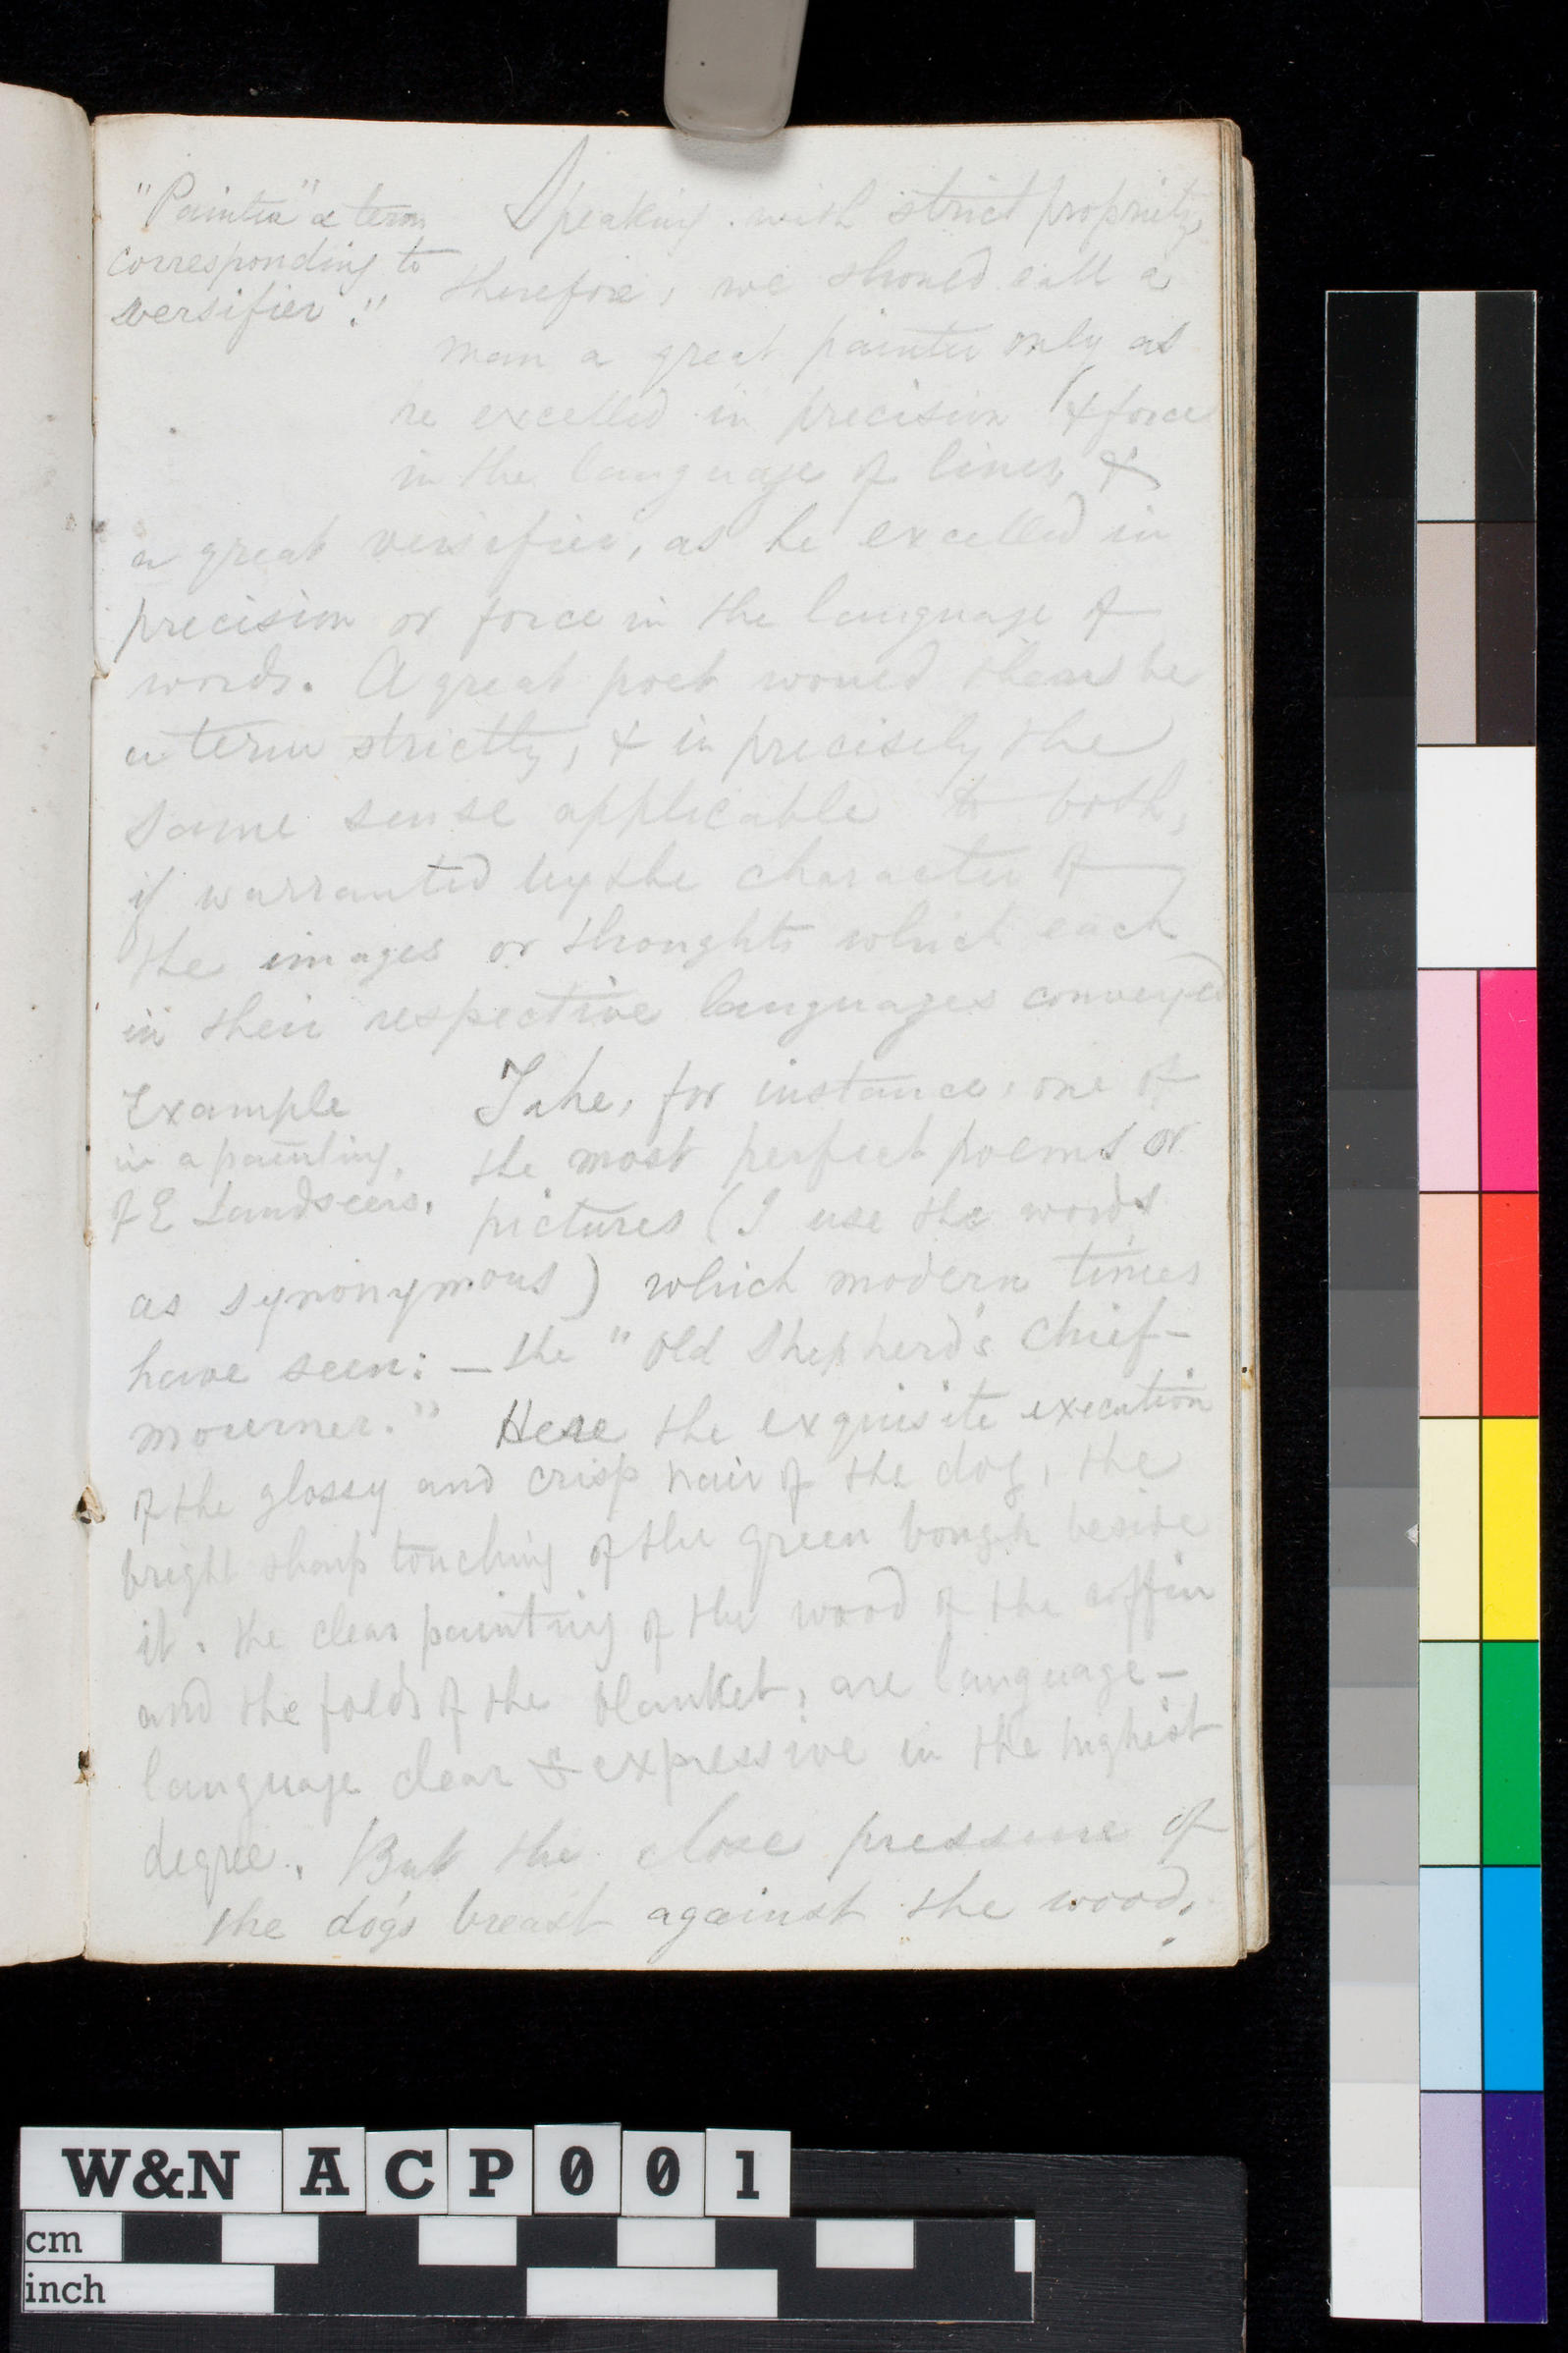 "Painter" a term
corresponding to
versifier."
Speaking with strict propriety,
therefore, we should call a
man a great painter only as
he excelled in precision & force
in the language of lines, &
a great versifier, as he excelled in
precision or force in the language of
words. A great poet would then be
a term strictly, & in precisely the
same sense applicable to both,
if warranted by the character of
the images or thoughts which each
in their respective languages conveyed
Example
in a painting
of E Landseers.
Take, for instance, one of
the most perfect poems or
pictures (I use the words
as synonymous) which modern times
have seen: — the "Old Shepherd's Chief-
mourner." Here the exquisite execution
of the glossy and crisp hair of the dog, the
bright sharp touching of the green bough beside
it, the clear painting of the wood of the coffin
and the folds of the blanket, are language —
language clear & expressive in the highest
degree. But the close pressure of
the dog's breast against the wood,
W&N ACP001
cm
inch